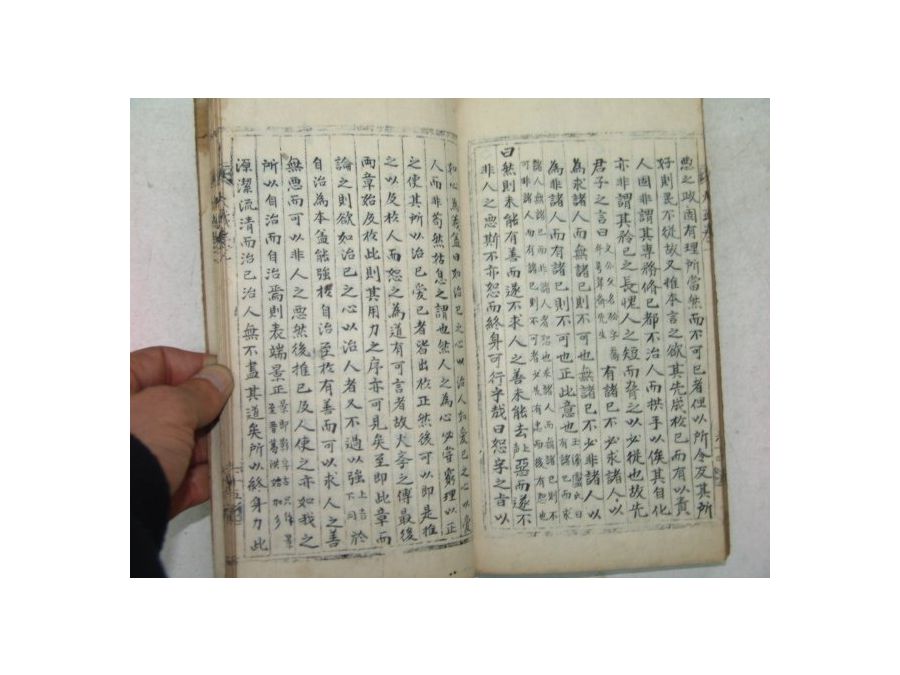 惡之政固有理所當然而不可已者但以所令反其所
好則民不從故又推本言之欲其先成於己而有以責
人固非謂其專務修己都不治人而拱手以俟其自化
亦非謂其矜己之長愧人之短而脅之以必從也故先
君子之言曰 有諸己不必求諸人以
為求諸人而無諸己則不可也無諸己不必非諸人以
為非諸人而有諸己則不可也正此意也 玉溪盧氏曰 有諸己而求
曰然則未能有善而遂不求人之善未能去聲惡而遂不
非人之惡斯不亦恕而終身可行乎哉曰恕字之旨以
如心為義盖曰如治己之心以治人如愛己之心以愛
人而非苟然姑息之謂也然人之為心必嘗窮理以正
之使其所以治己愛己者皆出於正然後可以即是推
之以及於人而恕之為道有可言者故大學之傳最後
兩章始及於此則其用力之序亦可見矣至即此章而
論之則欲如治己之心以治人者又不過以強上聲下同於
自治為本盖能強於自治至於有善而可以求人之善
無惡而可以非人之惡然後推己及人使之亦如我之
所以自治而自治焉則表端景正
源潔流清而治己治人無不盡其道矣所以終身力此